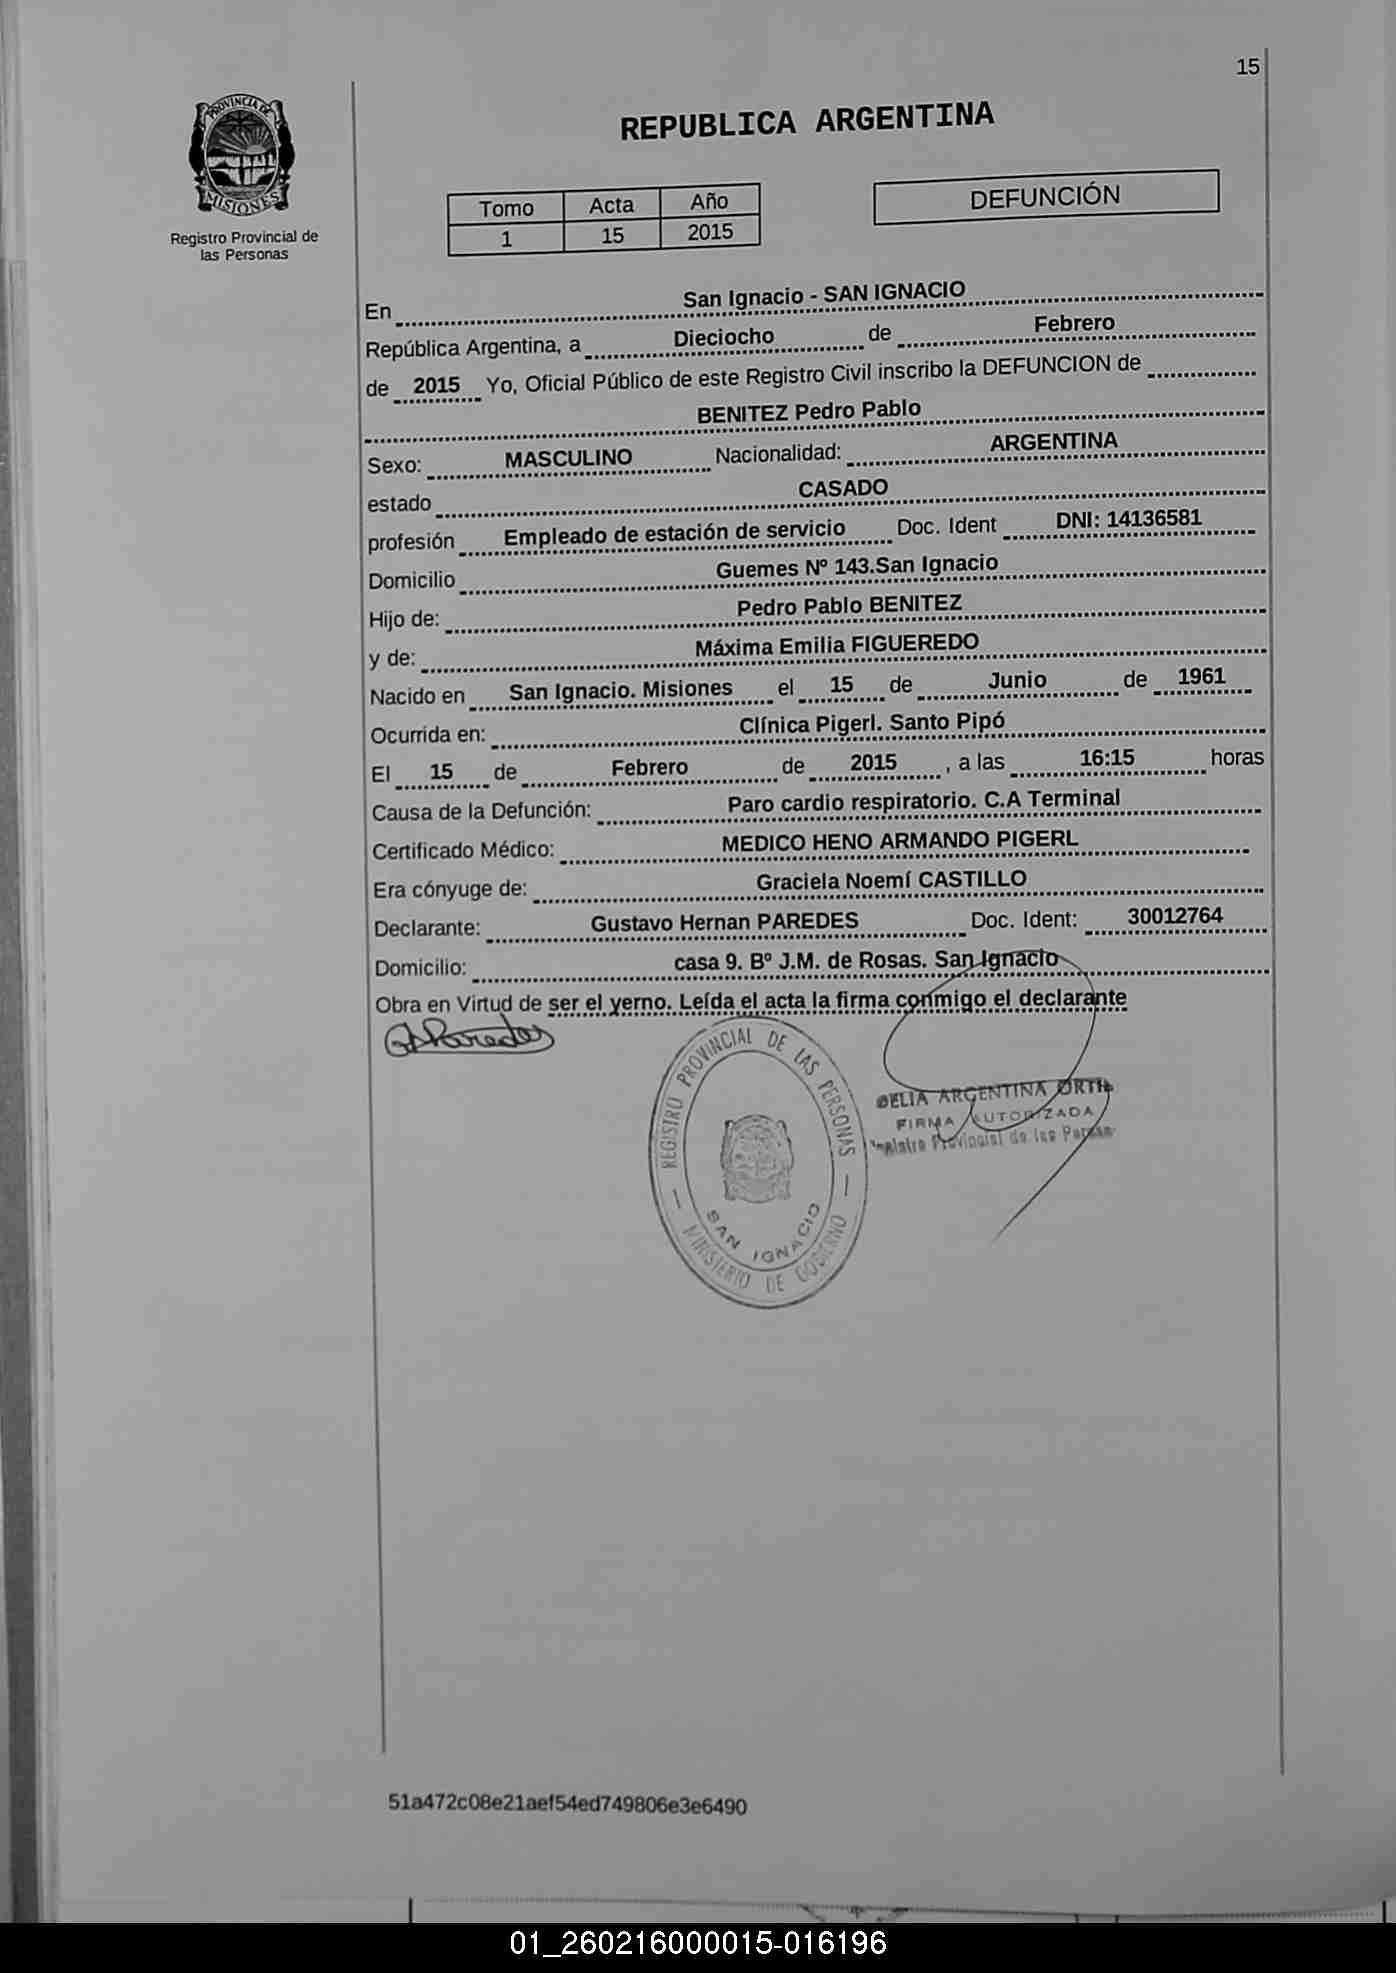 15
PROVINCIA DE
MISIONES
Registro Provincial de
las Personas
REPUBLICA ARGENTINA
Tomo Acta Año
1 15 2015
DEFUNCIÓN
En San Ignacio - SAN IGNACIO
República Argentina, a Dieciocho de Febrero
de 2015 Yo, Oficial Público de este Registro Civil inscribo la DEFUNCION de
BENITEZ Pedro Pablo
Sexo: MASCULINO Nacionalidad: ARGENTINA
estado CASADO
profesión Empleado de estación de servicio Doc. Ident DNI: 14136581
Domicilio Guemes Nº 143.San Ignacio
Hijo de: Pedro Pablo BENITEZ
y de: Máxima Emilia FIGUEREDO
Nacido en San Ignacio. Misiones el 15 de Junio de 1961
Ocurrida en: Clínica Pigerl. Santo Pipó
El 15 de Febrero de 2015 , a las 16:15 horas
Causa de la Defunción: Paro cardio respiratorio. C.A Terminal
Certificado Médico: MEDICO HENO ARMANDO PIGERL
Era cónyuge de: Graciela Noemí CASTILLO
Declarante: Gustavo Hernan PAREDES Doc. Ident: 30012764
Domicilio: casa 9. Bº J.M. de Rosas. San Ignacio
Obra en Virtud de ser el yerno. Leída el acta la firma conmigo el declarante
Paredes
REGISTRO PROVINCIAL DE LAS PERSONAS
SAN IGNACIO
MINISTERIO DE GOBIERNO
ARGENTINA
FIRMA AUTORIZADA
Provincial de las
51a472c08e21aef54ed749806e3e6490
01_260216000015-016196